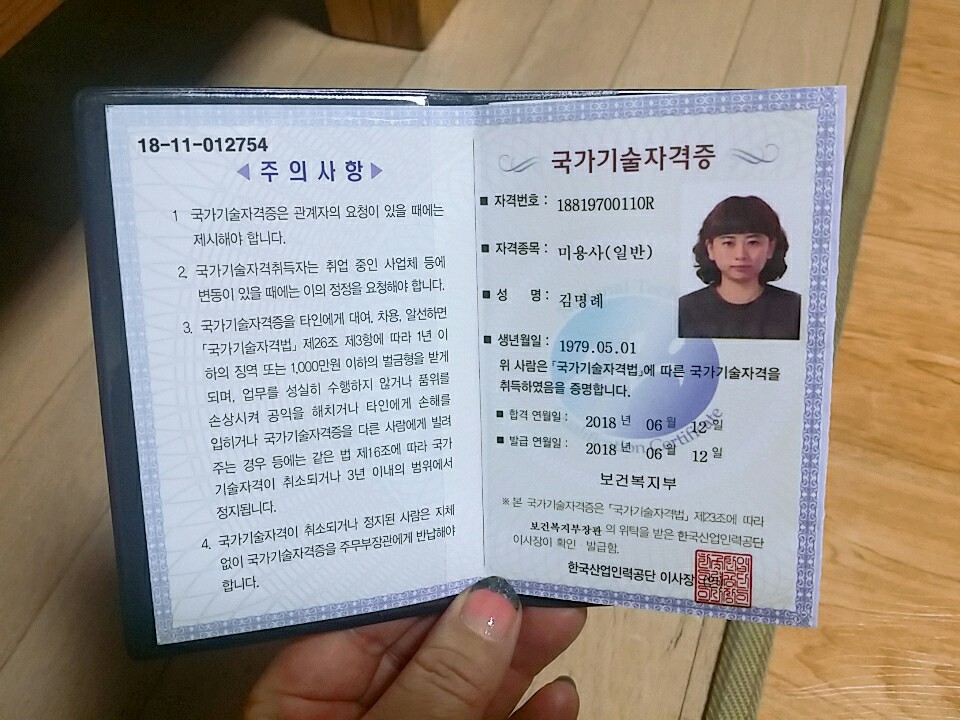 18-11-012754
◀주의사항▶
1 국가기술자격증은 관계자의 요청이 있을 때에는
제시해야 합니다.
2. 국가기술자격취득자는 취업 중인 사업체 등에
변동이 있을 때에는 이의 정정을 요청해야 합니다.
3. 국가기술자격증을 타인에게 대여, 차용, 알선하면
「국가기술자격법」 제26조 제3항에 따라 1년 이
하의 징역 또는 1,000만원 이하의 벌금형을 받게
되며, 업무를 성실히 수행하지 않거나 품위를
손상시켜 공익을 해치거나 타인에게 손해를
입히거나 국가기술자격증을 다른 사람에게 빌려
주는 경우 등에는 같은 법 제16조에 따라 국가
기술자격이 취소되거나 3년 이내의 범위에서
정지됩니다.
4. 국가기술자격이 취소되거나 정지된 사람은 지체
없이 국가기술자격증을 주무부장관에게 반납해야
합니다.
국가기술자격증
■ 자격번호 : 18819700110R
■ 자격종목 : 미용사(일반)
■ 성 명 : 김명례
■ 생년월일 : 1979.05.01
위 사람은 「국가기술자격법」에 따른 국가기술자격을
취득하였음을 증명합니다.
■ 합격 연월일 : 2018 년 06 월 12 일
■ 발급 연월일 : 2018 년 06 월 12 일
보건복지부
※ 본 국가기술자격증은 「국가기술자격법」 제23조에 따라
보건복지부장관 의 위탁을 받은 한국산업인력공단
이사장이 확인 · 발급함.
한국산업인력공단 이사장